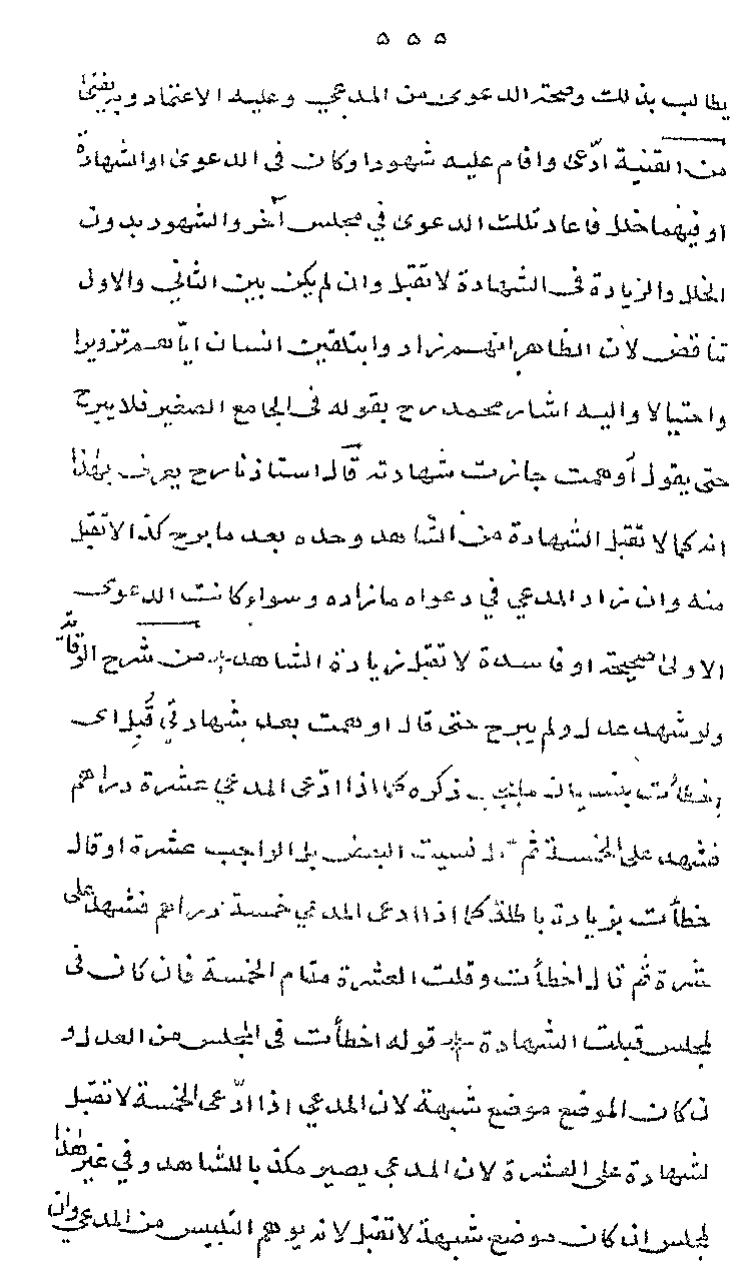 ٥٥٥
يطالب بذلك وصحة الدعوى من المدعي وعليه الاعتماد وبه يفتى
من القنية ادّعى واقام عليه شهودا وكان فى الدعوى او الشهادة
او فيهما خلل فاعاد تلك الدعوى في مجلس آخر والشهود بدون
الخلل والزيادة فى الشهادة لا تقبل وان لم يكن بين الثاني والاول
تناقض لان الظاهر انهم زاد وا بتلقين انسان ايّاهم تزويرا
واحتيالا واليه اشار محمد رح بقوله فى الجامع الصغير فلا يبرح
حتى يقول أوهمت جازت شهادته قال استاذنا رح يعرف بهذا
انه كما لا تقبل الشهادة من الشاهد وحده بعد ما برح كذا لا تقبل
منه وان زاد المدعي في دعواه ما زاده وسواء كانت الدعوى
الاولى صحيحة او فاسدة لا تقبل زيادة الشاهد من شرح الوقاية
ولو شهد عدل ولم يبرح حتى قال اوهمت بعد شهادتي قُبل اى
اخطأت بنسيان ذكره كما اذا ادّعى المدعي عشرة دراهم
فشهد على الخمسة ثم قال نسيت البعض بل الواجب عشرة او قال
خطأت بزيادة باطلة كما اذا ادعى المدعي خمسة دراهم فشهد على
عشرة ثم قال اخطأت وقلت العشرة مقام الخمسة فان كان فى
لمجلس قبلت الشهادة قوله اخطأت فى المجلس من العدل و
ن كان الموضع موضع شبهة لان المدعي اذا ادّعى الخمسة لا تقبل
لشهادة على العشرة لان المدعي يصير مكذبا للشاهد وفي غير هذا
لمجلس ان كان موضع شبهة لا تقبل لانه يوهم التلبيس من المدعي وان